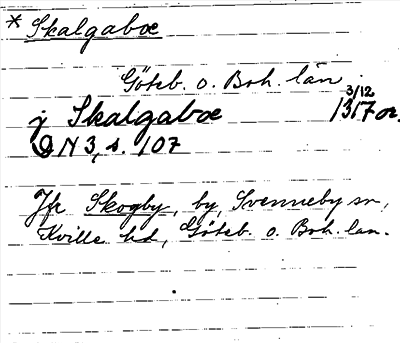 * Skalgabœ
Göteb. o. Boh. län
3/12
j Skalgabœ 1317 or.
DN 3, s. 107
Jfr Skogby, by, Svenneby sn,
Kville hd, Göteb. o. Boh. län.